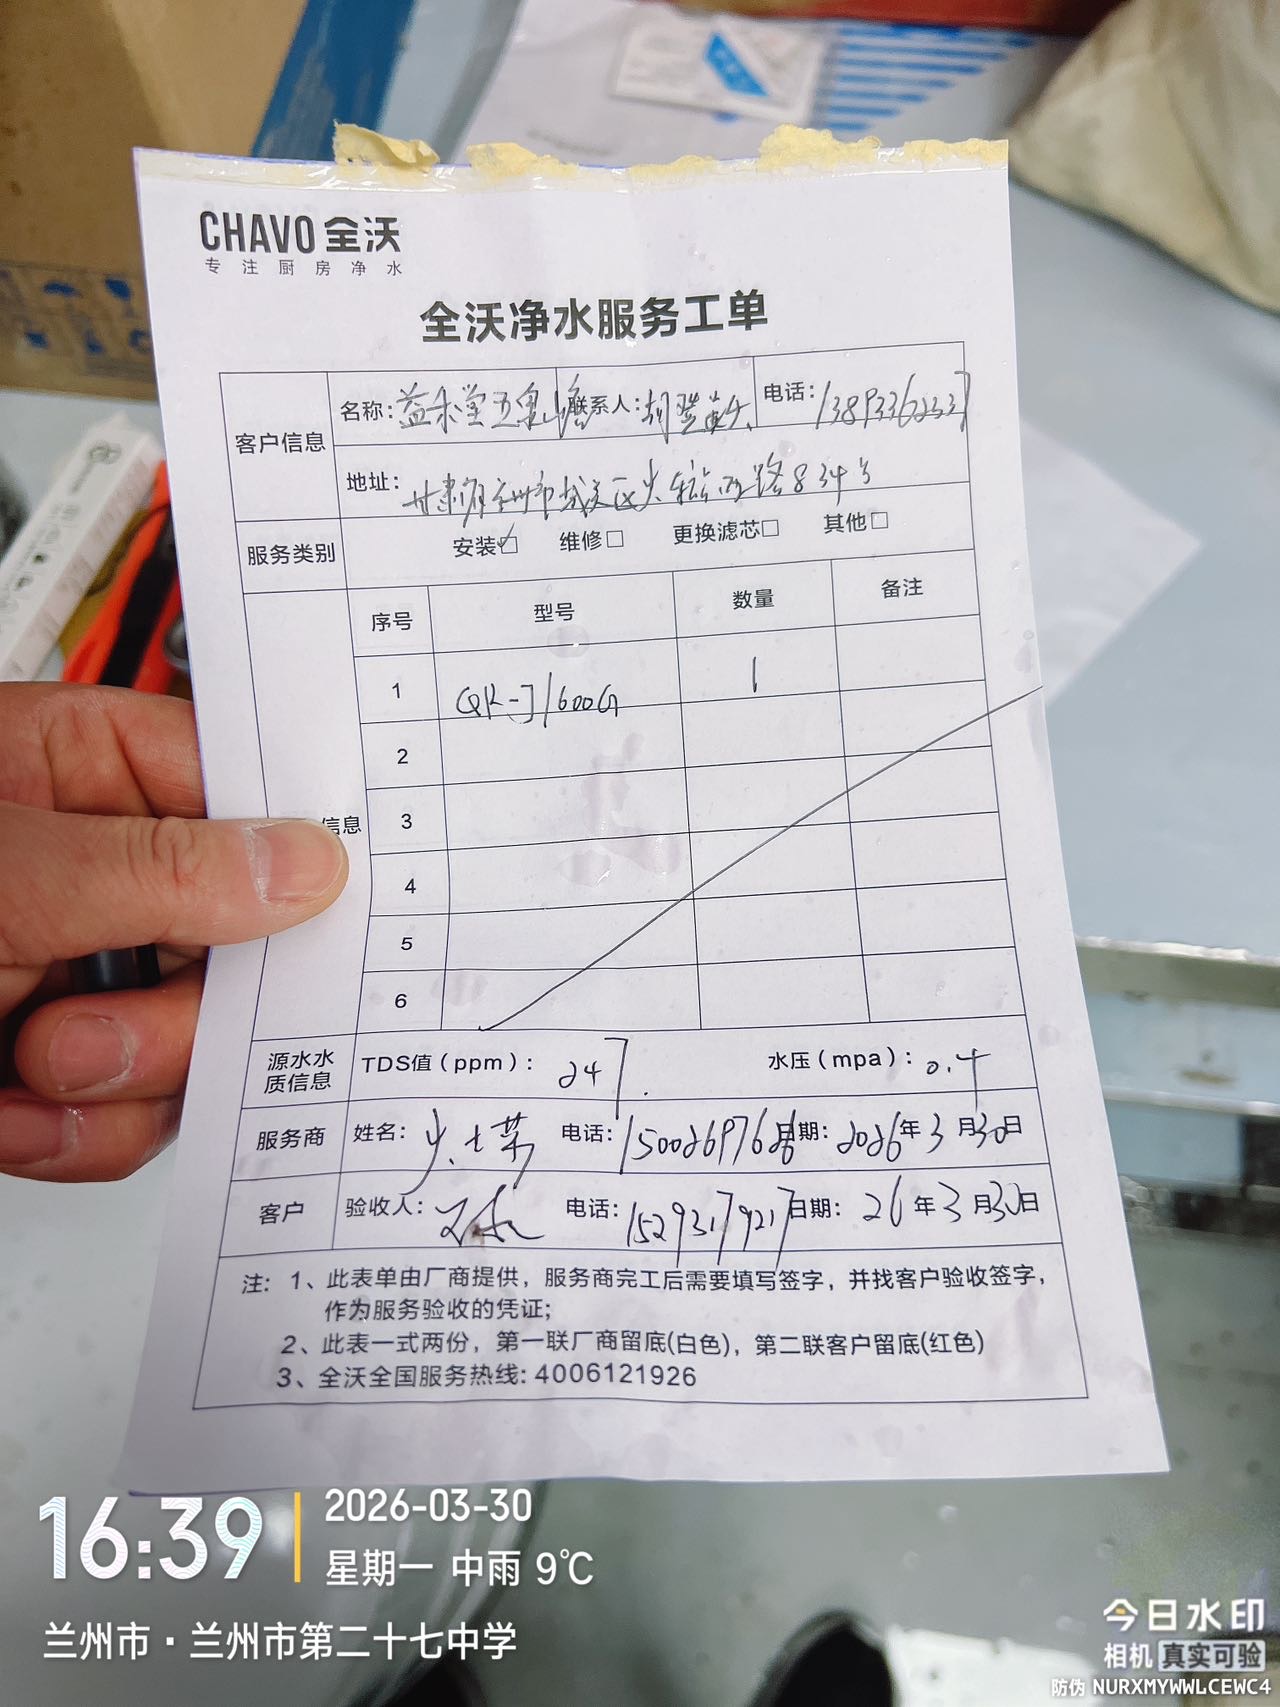 CHAVO 全沃
专注厨房净水
全沃净水服务工单
客户信息 名称: 益禾堂五泉 联系人: 胡登 电话: 13893362337
地址: 甘肃省兰州市城关区火车站西路834号
服务类别 安装☑ 维修□ 更换滤芯□ 其他□
序号 型号 数量 备注
1 QR-J/600G 1
2
信息 3
4
5
6
源水水质信息 TDS值(ppm): 247. 水压(mpa): 0.4
服务商 姓名: 电话: 15002697626 日期: 2026年3月30日
客户 验收人: 电话: 15293179217 日期: 26年3月30日
注: 1、此表单由厂商提供，服务商完工后需要填写签字，并找客户验收签字，
作为服务验收的凭证；
2、此表一式两份，第一联厂商留底(白色)，第二联客户留底(红色)
3、全沃全国服务热线: 4006121926
16:39
2026-03-30
星期一 中雨 9℃
兰州市·兰州市第二十七中学
今日水印
相机 真实可验
防伪 NURXMYWWLCEWC4